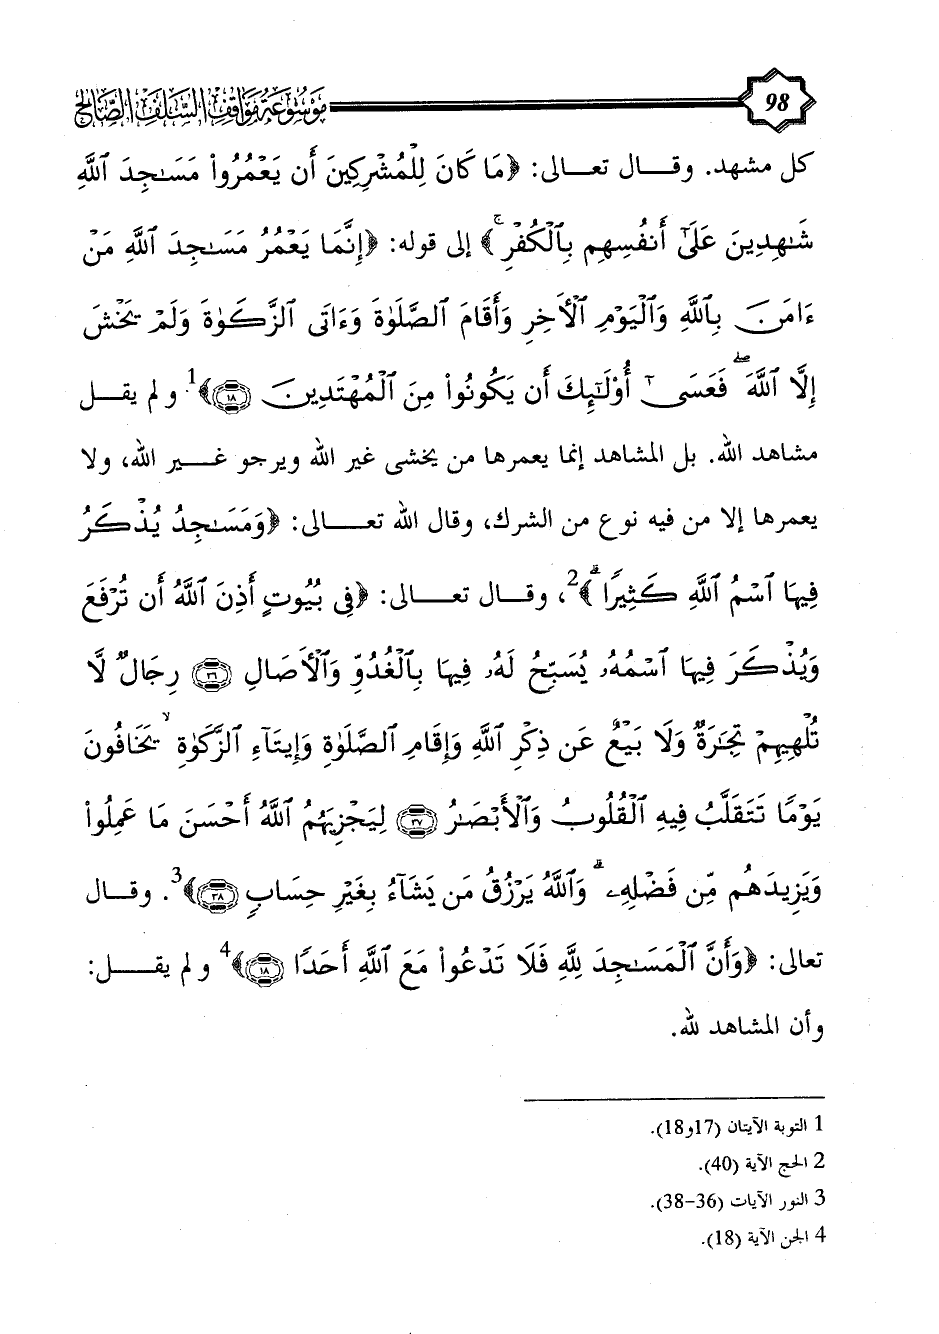 98 موسوعة مواقف السلف الصالح
كل مشهد. وقال تعالى: ﴿مَا كَانَ لِلْمُشْرِكِينَ أَن يَعْمُرُوا۟ مَسَـٰجِدَ ٱللَّهِ
شَـٰهِدِينَ عَلَىٰٓ أَنفُسِهِم بِٱلْكُفْرِ ۚ﴾ إلى قوله: ﴿إِنَّمَا يَعْمُرُ مَسَـٰجِدَ ٱللَّهِ مَنْ
ءَامَنَ بِٱللَّهِ وَٱلْيَوْمِ ٱلْـَٔاخِرِ وَأَقَامَ ٱلصَّلَوٰةَ وَءَاتَى ٱلزَّكَوٰةَ وَلَمْ يَخْشَ
إِلَّا ٱللَّهَ ۖ فَعَسَىٰٓ أُو۟لَـٰٓئِكَ أَن يَكُونُوا۟ مِنَ ٱلْمُهْتَدِينَ ۝١٨﴾1. ولم يقل
مشاهد الله. بل المشاهد إنما يعمرها من يخشى غير الله ويرجو غير الله، ولا
يعمرها إلا من فيه نوع من الشرك، وقال الله تعالى: ﴿وَمَسَـٰجِدُ يُذْكَرُ
فِيهَا ٱسْمُ ٱللَّهِ كَثِيرًا ۗ﴾2، وقال تعالى: ﴿فِى بُيُوتٍ أَذِنَ ٱللَّهُ أَن تُرْفَعَ
وَيُذْكَرَ فِيهَا ٱسْمُهُۥ يُسَبِّحُ لَهُۥ فِيهَا بِٱلْغُدُوِّ وَٱلْـَٔاصَالِ ۝٣٦ رِجَالٌ لَّا
تُلْهِيهِمْ تِجَـٰرَةٌ وَلَا بَيْعٌ عَن ذِكْرِ ٱللَّهِ وَإِقَامِ ٱلصَّلَوٰةِ وَإِيتَآءِ ٱلزَّكَوٰةِ ۙ يَخَافُونَ
يَوْمًا تَتَقَلَّبُ فِيهِ ٱلْقُلُوبُ وَٱلْأَبْصَـٰرُ ۝٣٧ لِيَجْزِيَهُمُ ٱللَّهُ أَحْسَنَ مَا عَمِلُوا۟
وَيَزِيدَهُم مِّن فَضْلِهِۦ ۗ وَٱللَّهُ يَرْزُقُ مَن يَشَآءُ بِغَيْرِ حِسَابٍ ۝٣٨﴾3. وقال
تعالى: ﴿وَأَنَّ ٱلْمَسَـٰجِدَ لِلَّهِ فَلَا تَدْعُوا۟ مَعَ ٱللَّهِ أَحَدًا ۝١٨﴾4 ولم يقل:
وأن المشاهد لله.
1 التوبة الآيتان (17و18).
2 الحج الآية (40).
3 النور الآيات (36-38).
4 الجن الآية (18).